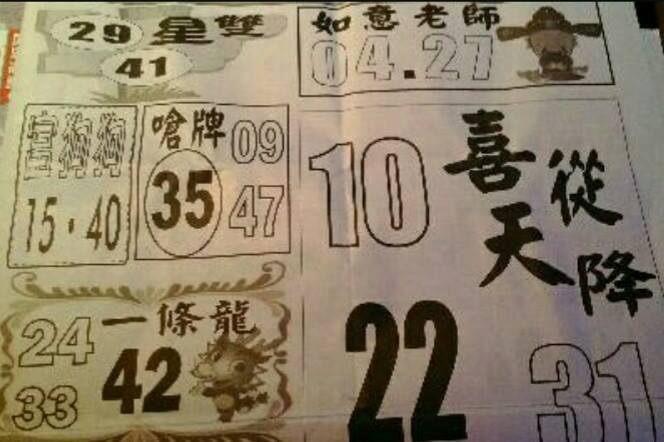 29 星雙
41
如意老師
04.27
富狗狗
15.40
嗆牌
09
35
47
10
喜從
天降
一條龍
24
42
33
22
31